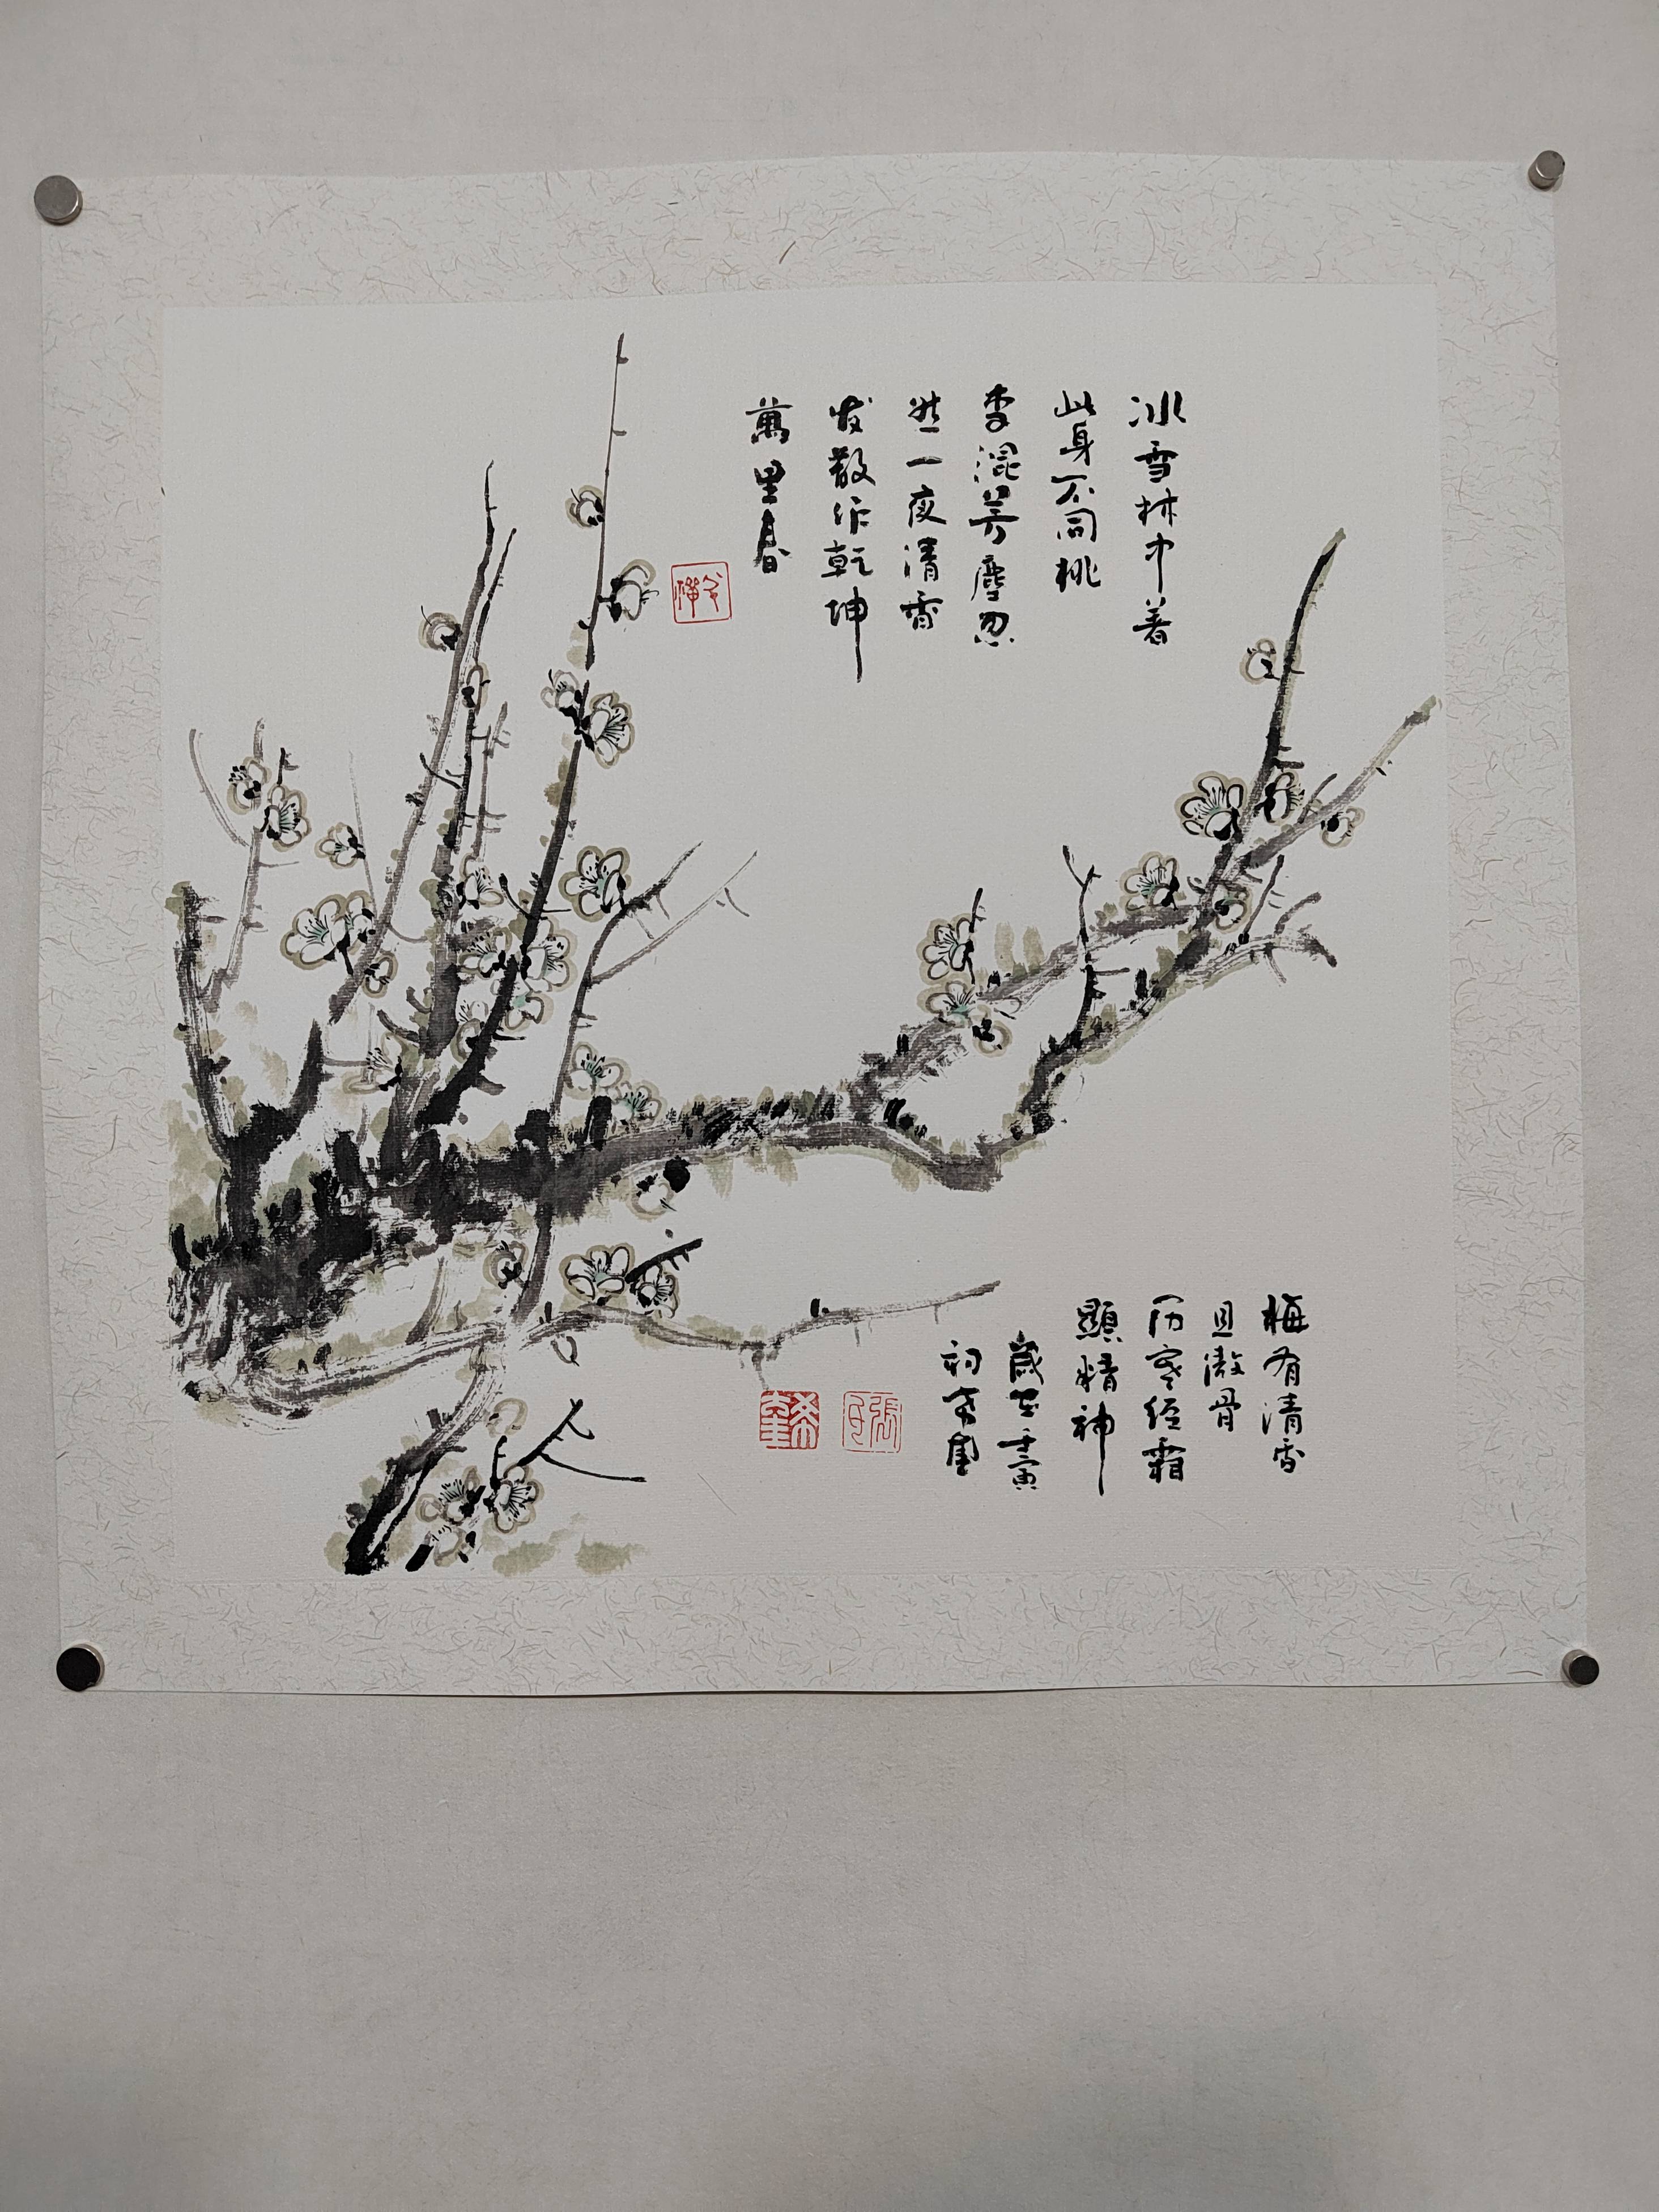 冰雪林中著
此身不同桃
李混芳塵忽
然一夜清香
发散作乾坤
萬里春
梅有清香
且傲骨
历寒经霜
顯精神
歲在壬寅
初冬
張氏